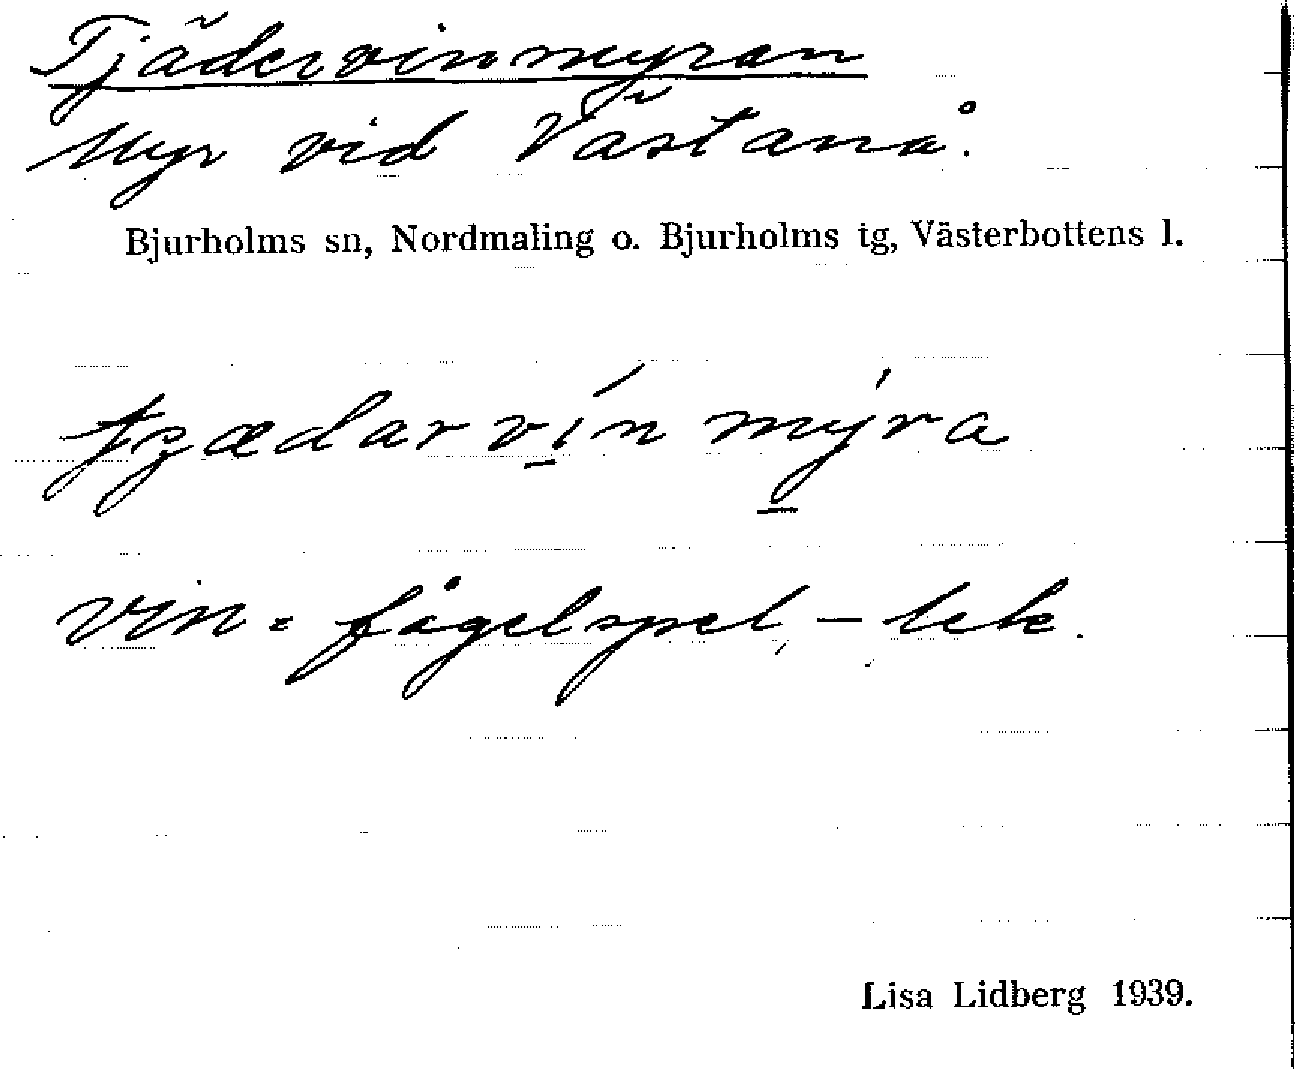 Tjädervinmyran
Myr vid Västanå.
Bjurholms sn, Nordmaling o. Bjurholms tg, Västerbottens l.
vin = fågelspel, – lek.
Lisa Lidberg 1939.